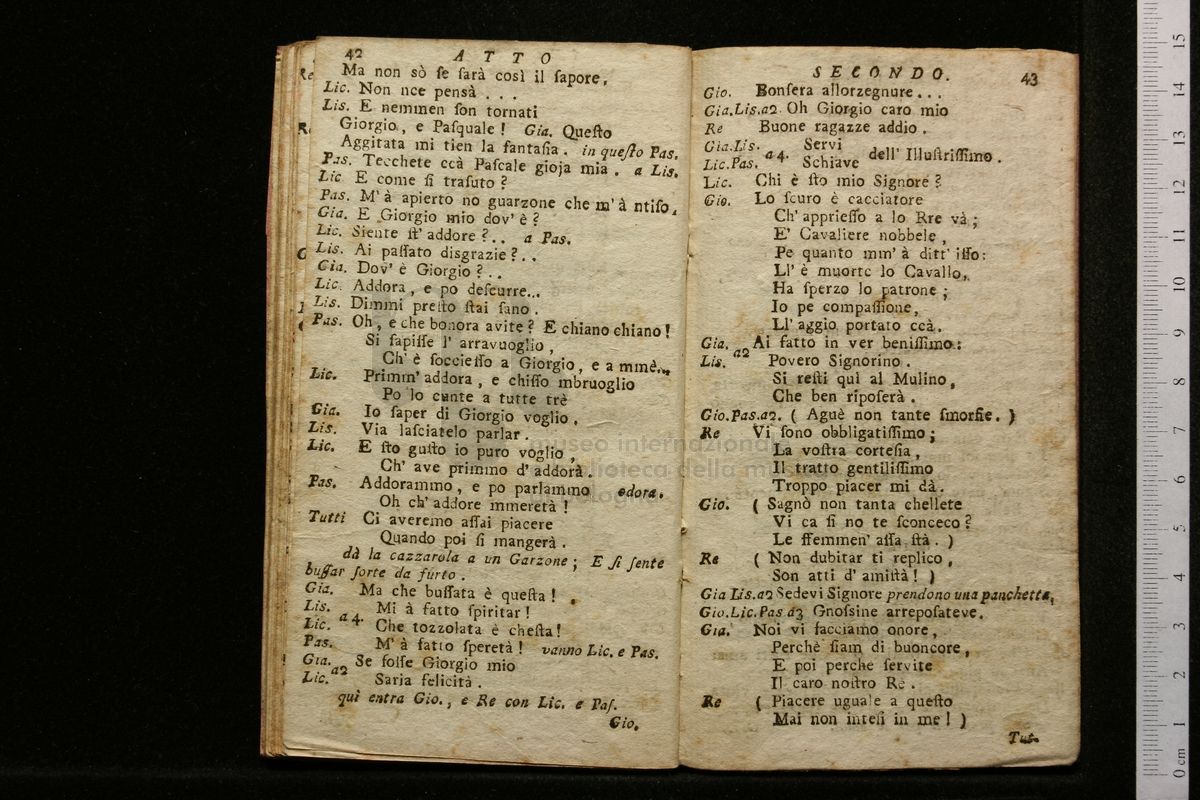 42 ATTO
Ma non sò se sarà così il sapore.
Lic. Non nce pensà ...
Lis. E nemmen son tornati
Giorgio, e Pasquale! Gia. Questo
Aggitata mi tien la fantasia. in questo Pas.
Pas. Tecchete ccà Pascale gioja mia. a Lis.
Lic. E come si trasuto?
Pas. M' à apierto no guarzone che m' à ntiso.
Gia. E Giorgio mio dov' è?
Lic. Siente st' addore?.. a Pas.
Lis. Ai passato disgrazie?..
Gia. Dov' è Giorgio?..
Lic. Addora, e po descurre...
Lis. Dimmi presto stai sano.
Pas. Oh, e che bonora avite? E chiano chiano!
Si sapisse l' arravuoglio,
Ch' è soccieffo a Giorgio, e a mmè...
Lic. Primm' addora, e chisso mbruoglio
Po lo cunte a tutte trè
Gia. Io saper di Giorgio voglio.
Lis. Via lasciatelo parlar.
Lic. E sto gusto io puro voglio,
Ch' ave primmo d' addorà.
Pas. Addorammo, e po parlammo odora.
Oh ch' addore mmeretà!
Tutti Ci averemo assai piacere
Quando poi si mangerà.
dà la cazzarola a un Garzone; E si sente
bussar forte da furto.
Gia. Ma che bussata è questa!
Lis. Mi à fatto spiritar!
Lic. a 4. Che tozzolata è chesta!
Pas. M' à fatto speretà! vanno Lic. e Pas.
Gia. a2 Se fosse Giorgio mio
Lic. Saria felicità.
quì entra Gio., e Re con Lic. e Pas.
Gio.
SECONDO. 43
Gio. Bonsera allorzegnure...
Gia.Lis.a2. Oh Giorgio caro mio
Re Buone ragazze addio.
Gia.Lis. a 4. Servi dell' Illustrissimo.
Lic.Pas. Schiave
Lic. Chi è sto mio Signore?
Gio. Lo scuro è cacciatore
Ch' appriesso a lo Rre và;
E' Cavaliere nobbele,
Pe quanto mm' à ditt' isso:
Ll' è muorto lo Cavallo,
Ha sperzo lo patrone;
Io pe compassione,
Ll' aggio portato ccà.
Gia. a2 Ai fatto in ver benissimo:
Lis. Povero Signorino.
Si resti quì al Mulino,
Che ben riposerà.
Gio.Pas.a2. ( Aguè non tante smorfie. )
Re Vi sono obbligatissimo;
La vostra cortesia,
Il tratto gentilissimo
Troppo piacer mi dà.
Gio. ( Sagnò non tanta chellete
Vi ca si no te sconceco?
Le ffemmen' assa stà. )
Re ( Non dubitar ti replico,
Son atti d' amistà! )
Gia Lis.a2 Sedevi Signore prendono una panchetta,
Gio.Lic.Pas a3 Gnossine arreposateve.
Gia. Noi vi facciamo onore,
Perchè siam di buoncore,
E poi perche servite
Il caro nostro Re.
Re ( Piacere uguale a questo
Mai non intesi in me! )
Tut.